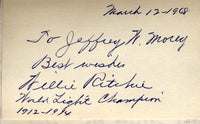 March 12-1968
To Jeffrey W. Morey
Best wishes
Willie Ritchie
World Light Champion
1912-1914